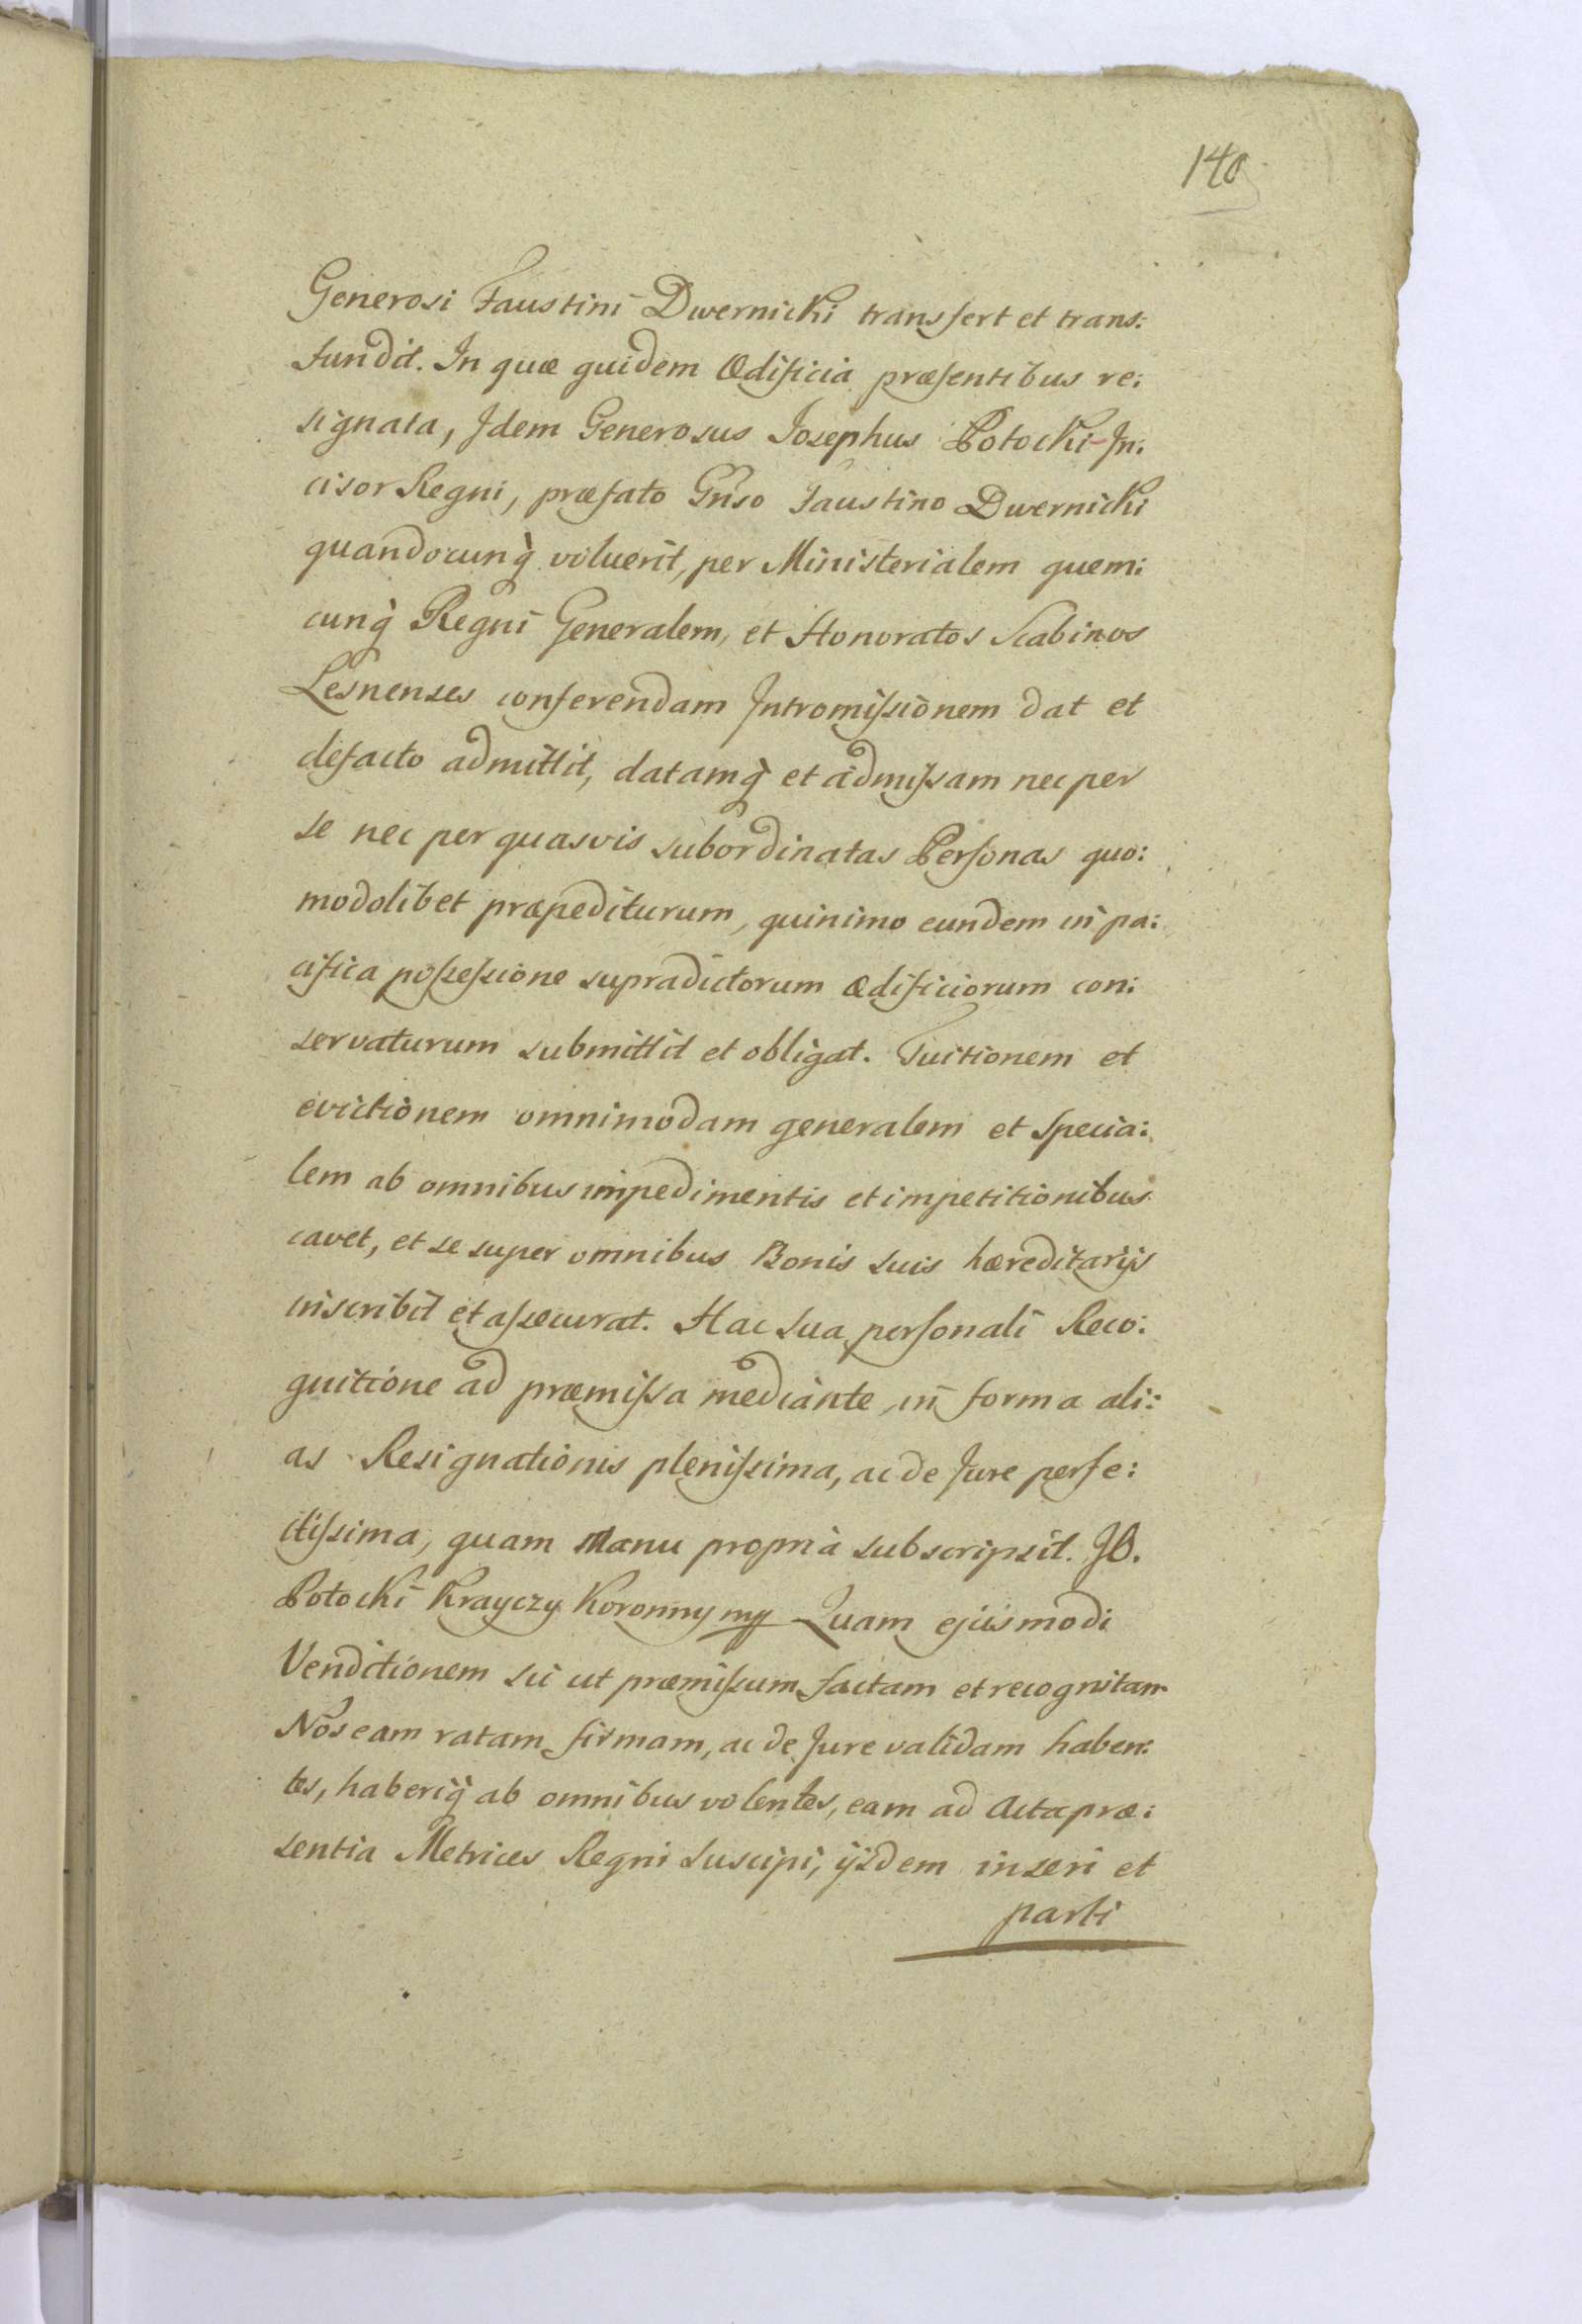 140
Generosi Faustini Dwernicki transfert et trans:
fundit. In quæ quidem Ædificia præsentibus re:
signata, Idem Generosus Josephus Potocki In:
cisor Regni, præfato Gnso Faustino Dwernicki
quandocunq̀ voluerit, per Ministerialem quem:
cunq̀ Regni Generalem, et Honoratos Scabinos
Lesnenses conferendam Intromissionem dat et
defacto admittit, datamq̀ et admissam nec per
se nec per quasvis subordinatas Personas quo:
modolibet præpediturum, quinimo eundem in pa:
cifica possessione supradictorum ædificiorum con:
servaturum submittit et obligat. Tuitionem et
evictionem omnimodam generalem et specia:
lem ab omnibus impedimentis et impetitionibus
cavet, et se super omnibus Bonis suis hæreditarijs
inscribit et assecurat. Hac sua personali Reco:
gnitione ad præmissa mediante, in forma ali:
as Resignationis plenissima, ac de Jure perfe:
ctissima, quam Manu propria subscripsit. J.
Potocki Krayczy Koronny mp Quam ejusmodi
Venditionem sic ut præmissum factam et recognitam
Nos eam ratam, firmam, ac de Jure validam haben:
tes, haberiq̀ ab omnibus volentes, eam ad Acta præ:
sentia Metrices Regni suscipi, ijsdem inseri et
parti